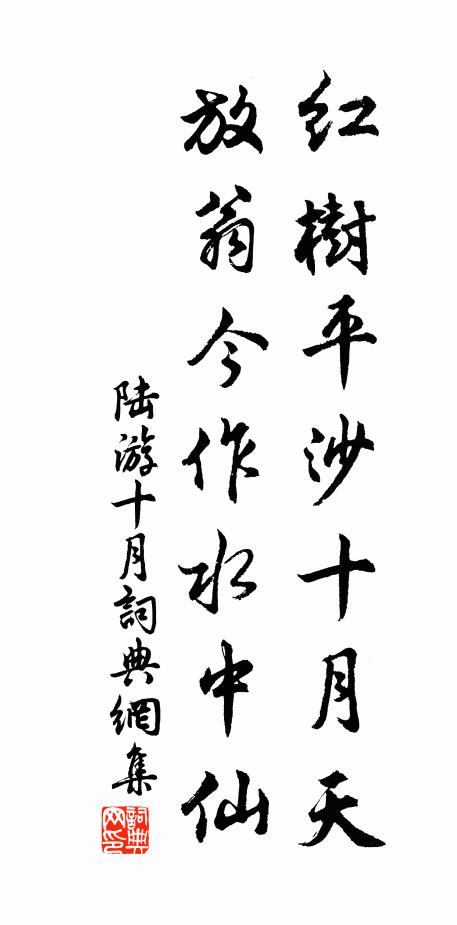 紅樹平沙十月天
放翁今作水中仙
陸游十月詞典網集
詞典网印